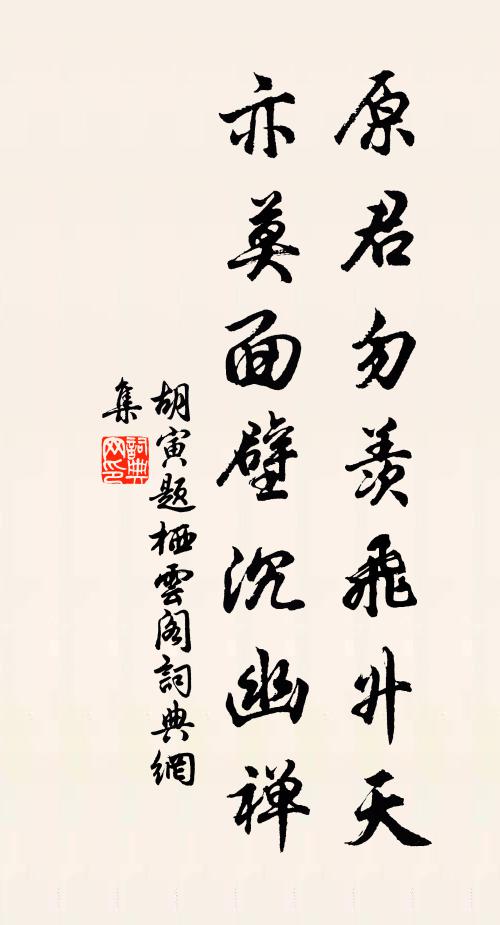 原君勿羨飛升天
亦莫面壁沉幽禅
胡寅题栖雲阁詞典網
集
詞典网印